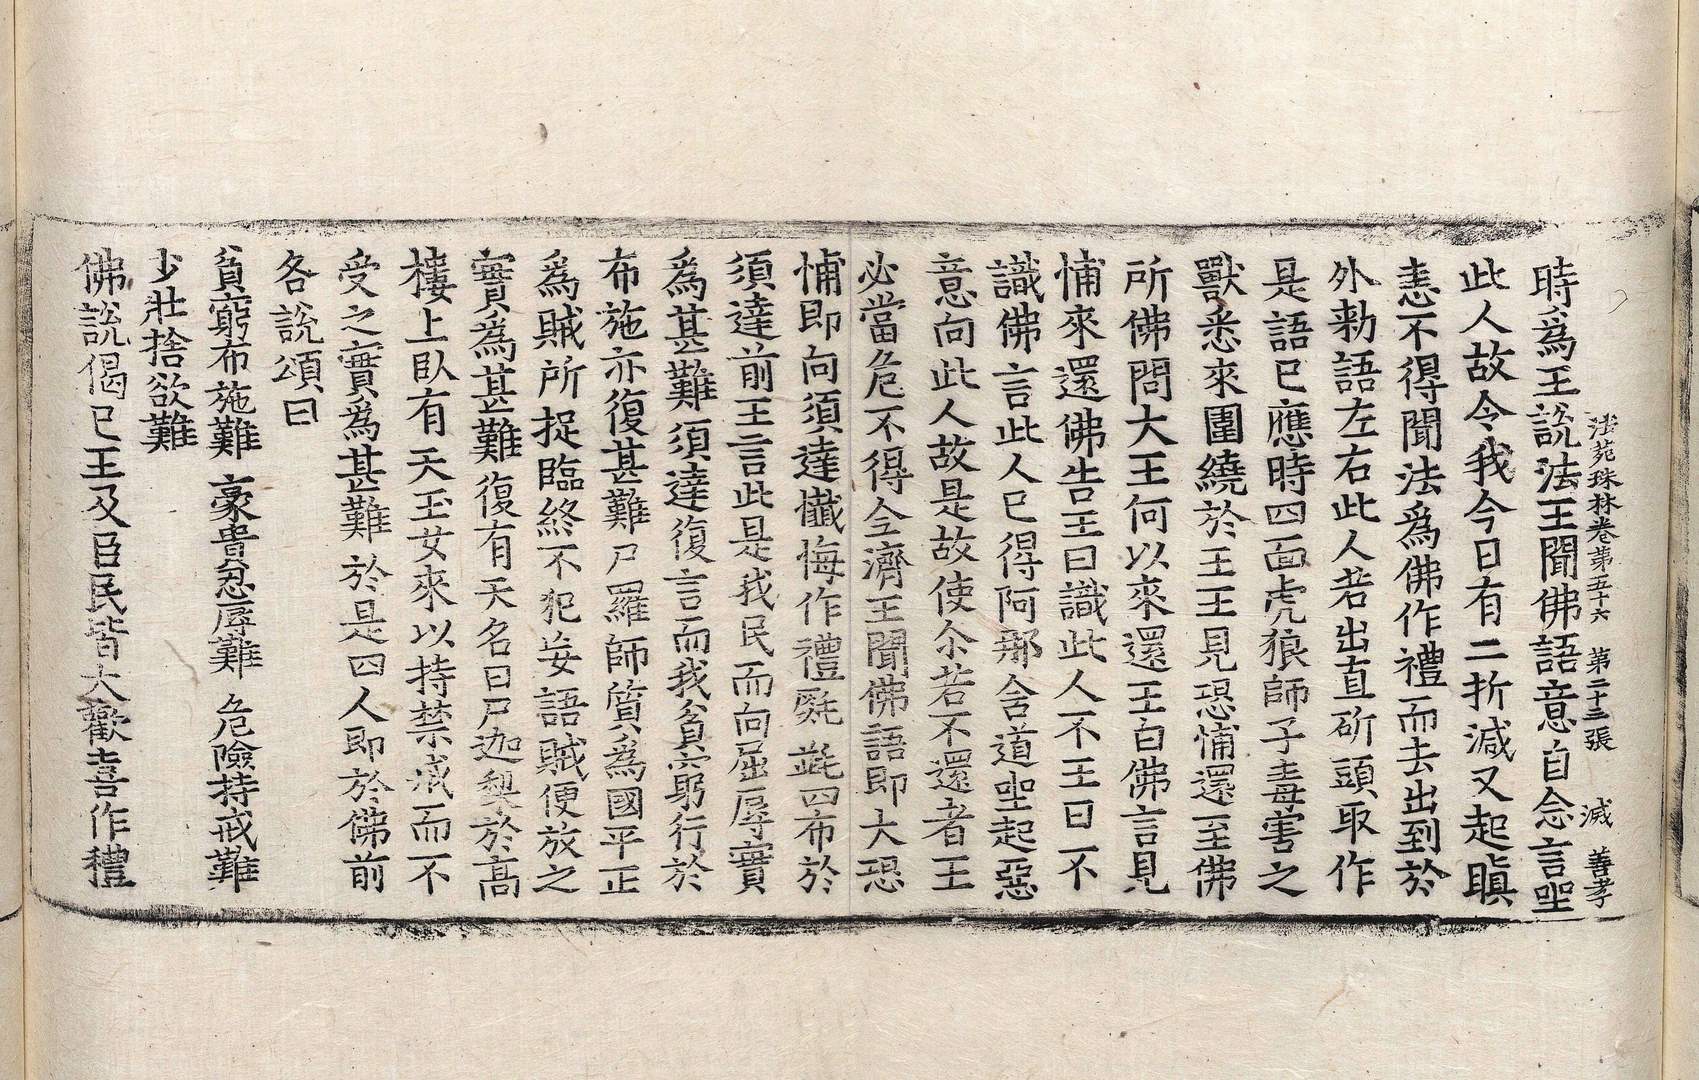 法苑珠林卷第五十六 第二十三張 減 善孝
時爲王說法王聞佛語意自念言坐
此人故令我今日有二折減又起瞋
恚不得聞法爲佛作禮而去出到於
外勑語左右此人若出直斫頭取作
是語已應時四面虎狼師子毒害之
獸悉來圍繞於王王見恐怖還至佛
所佛問大王何以來還王白佛言見
怖來還佛告王曰識此人不王曰不
識佛言此人已得阿那含道坐起惡
意向此人故是故使尒若不還者王
必當危不得全濟王聞佛語即大恐
怖即向須達懺悔作禮氍毹四布於
須達前王言此是我民而向屈辱實
爲甚難須達復言而我貧窮行於
布施亦復甚難尸羅師質爲國平正
爲賊所捉臨終不犯妄語賊便放之
實爲甚難復有天名曰尸迦梨於高
樓上臥有天玉女來以持禁戒而不
受之實爲甚難於是四人即於佛前
各說頌曰
貧窮布施難 豪貴忍辱難 危險持戒難
少壯捨欲難
佛說偈已王及臣民皆大歡喜作禮